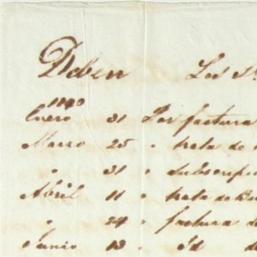 Deben Los S
1840
Enero 31 Por factura
Marzo 25 " nota de
" 31 " subscripci
Abril 11 " nota de
" 24 " factura de
Junio 13 " Id de